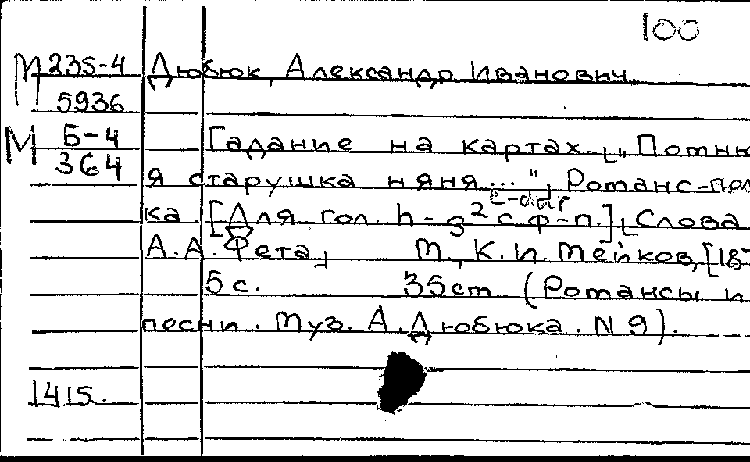 100
М 235-4 Дюбюк, Александр Иванович
5936
М Б-4 Гадание на картах. [„Помню
364
я старушка няня...", Романс-поль
E-dur
ка [Для гол. h-g² с ф-п.] [Слова
А.А. Фета] М., К.И. Мейков, [187
5 с. 35 cm (Романсы и
песни. Муз. А. Дюбюка. N 9).
1415.